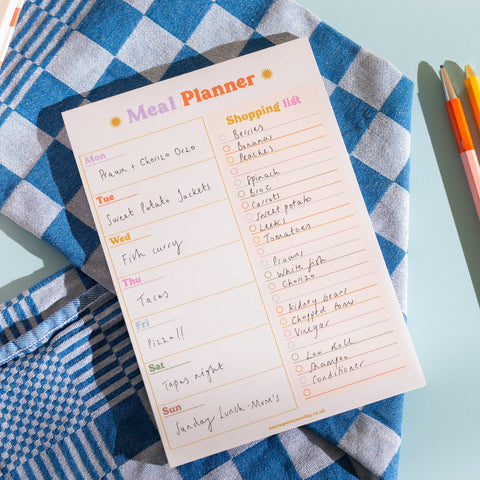 Meal Planner
Mon
Prawn + Chorizo Orzo
Tue
Sweet Potato Jackets
Wed
Fish curry
Thu
Tacos
Fri
Pizza!!
Sat
Tapas night
Sun
Sunday Lunch - Mom's
Shopping list
Berries
Bananas
Peaches
Spinach
Broc
Carrots
Sweet potato
Leeks
Tomatoes
Prawns
White fish
Chorizo
Kidney beans
Chopped toms
Vinegar
Loo Roll
Shampoo
Conditioner